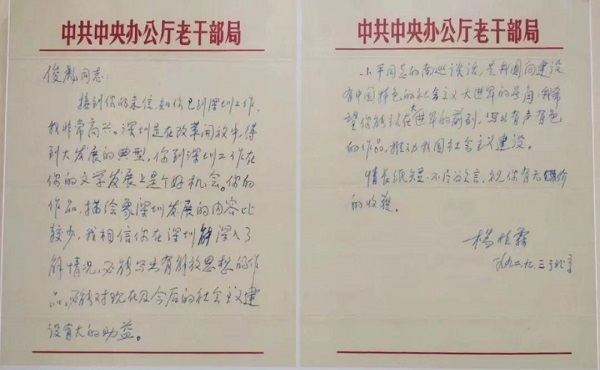 中共中央办公厅老干部局
俊彪同志:
接到你的来信,知你已到深圳工作,
我非常高兴。深圳是在改革开放中,得
到大发展的典型,你到深圳工作在
你的文学发展上是个好机会。你的
作品,描绘象深圳发展的内容比
较少,我相信你在深圳能深入了
解情况,必能写出有解放思想的作
品,必能对现在及今后的社会主义建
设有大的助益。
中共中央办公厅老干部局
小平同志的南巡谈话,是我国向建设
有中国特色的社会主义大进军的号角,我希
望你能站在大进军的前列,写出有声有色
的作品,推动我国社会主义建设。
情长纸短,不尽欲言,祝你有无价
的收获。